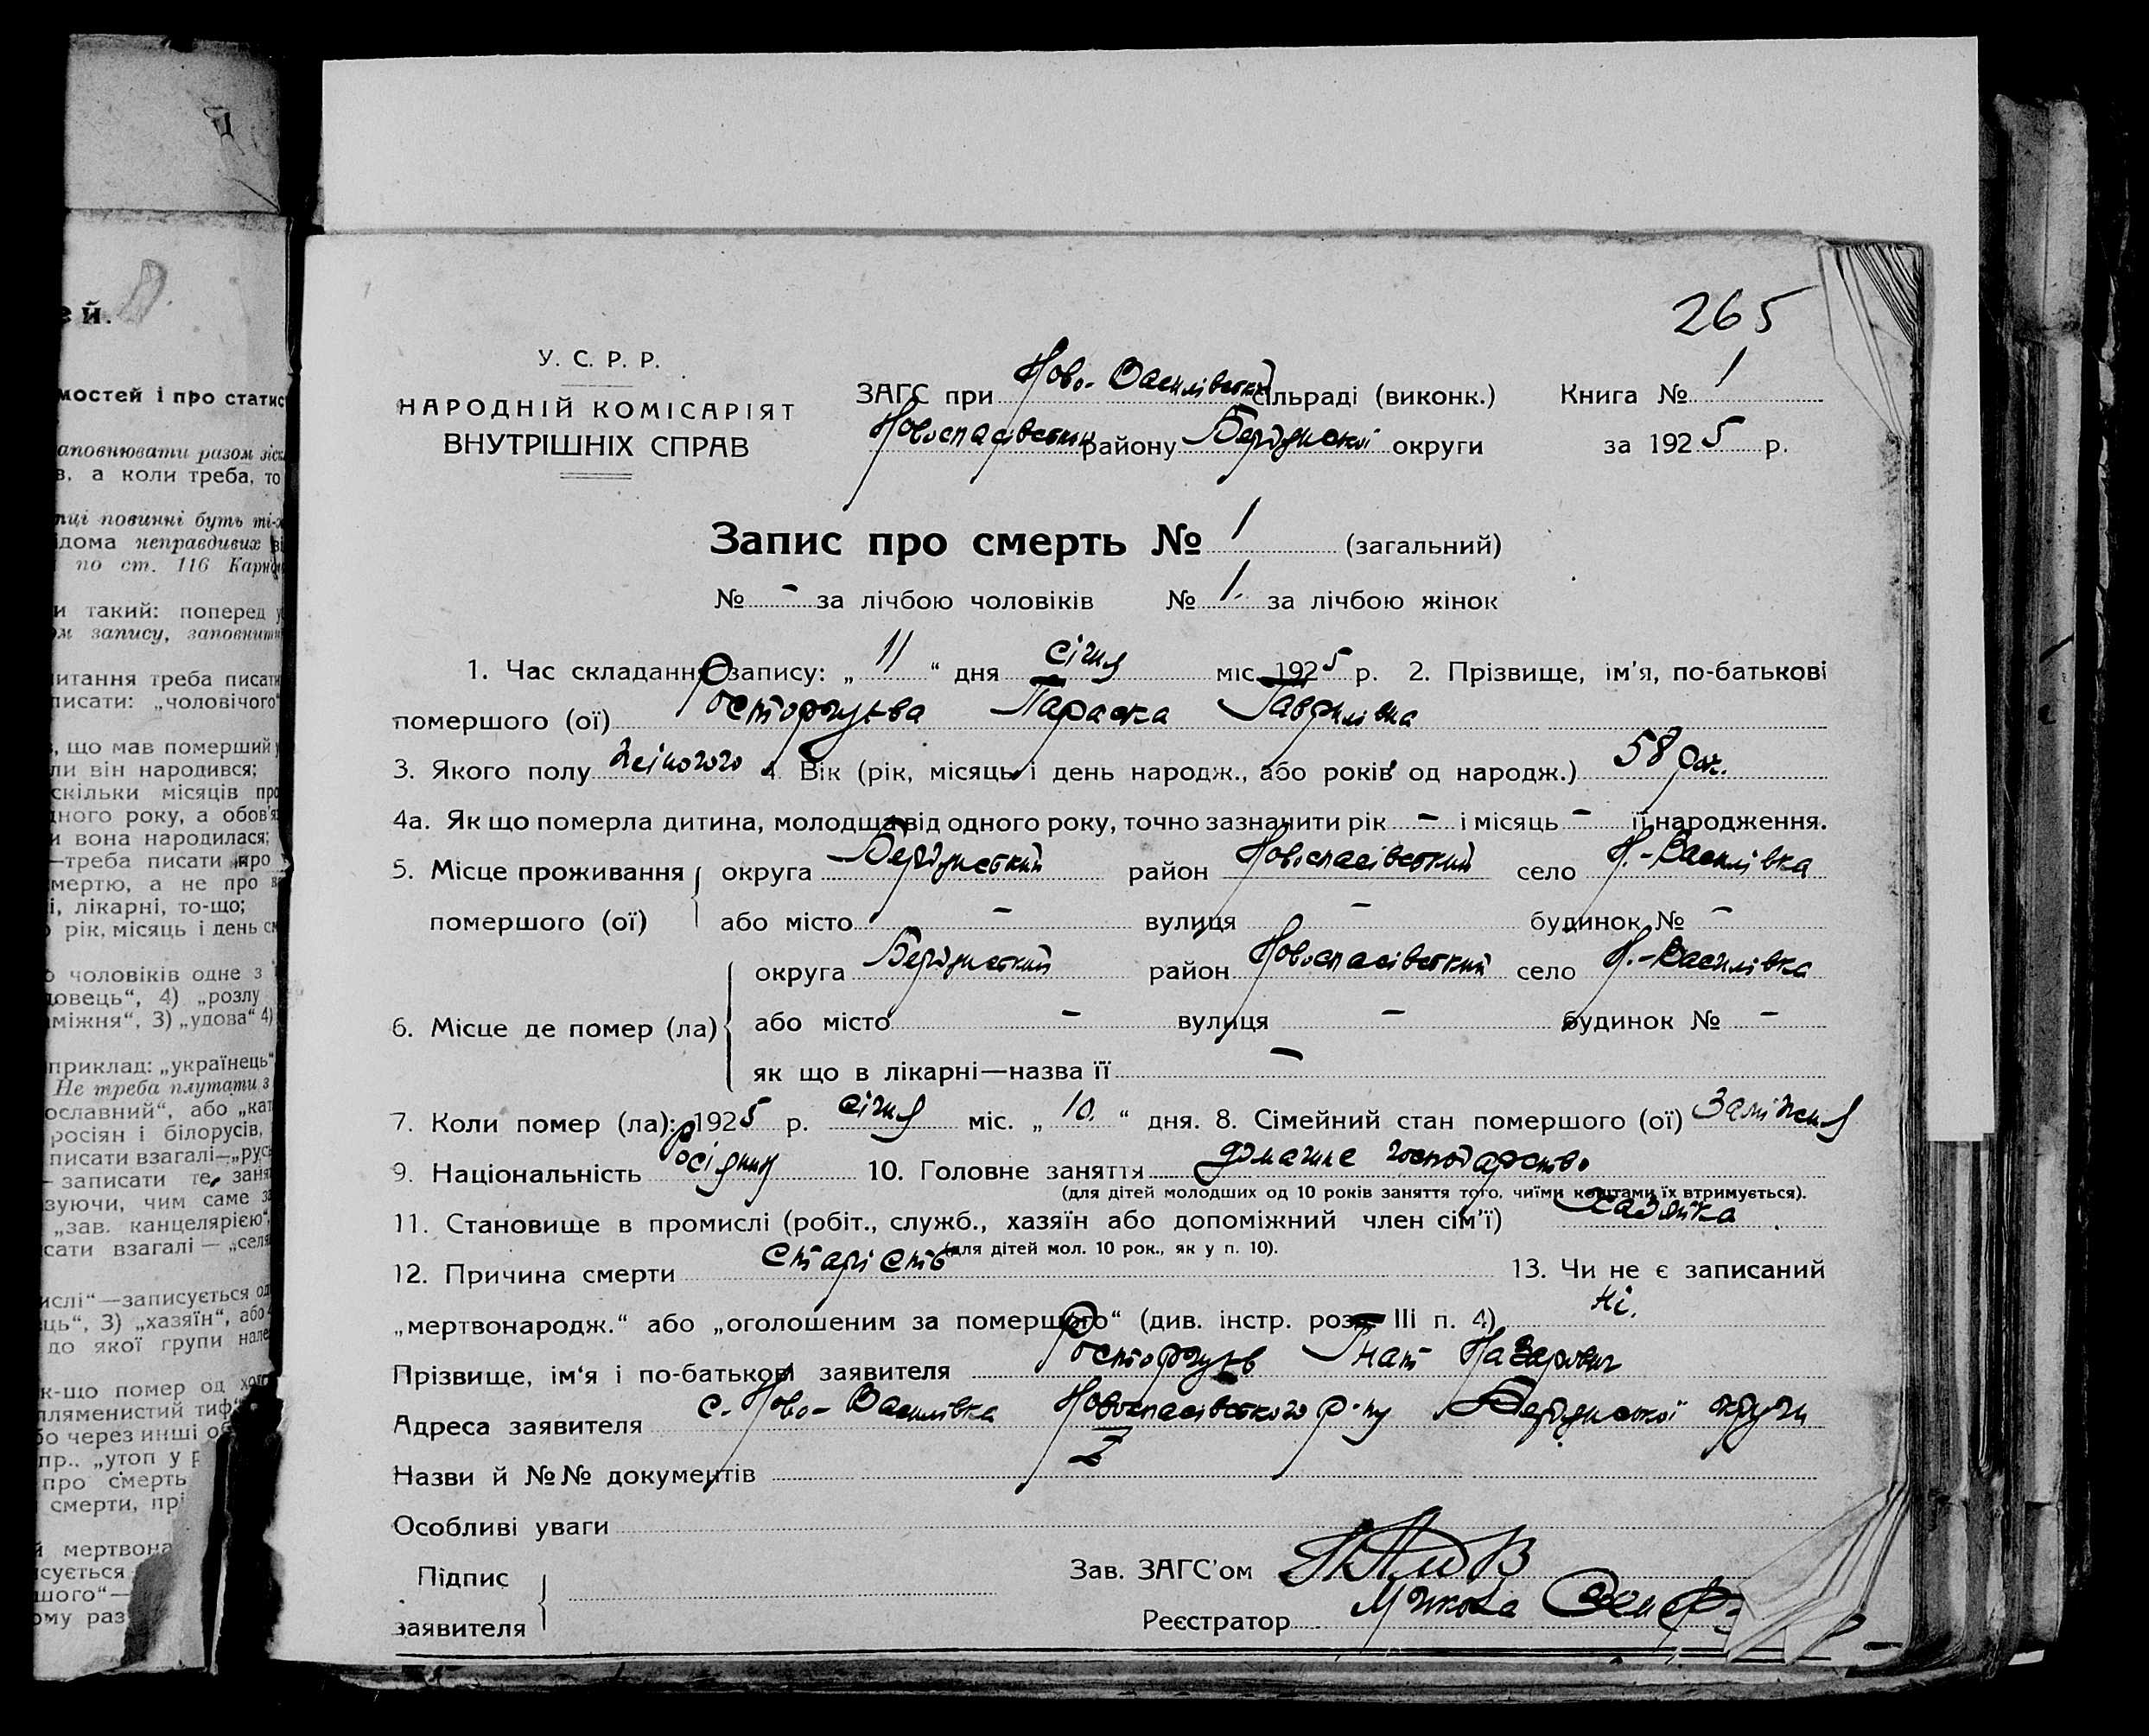 ей.
мостей і про статис
аповнювати разом зіс
в, а коли треба, то
пці повинні буть ті-
ідома неправдивих ві
по ст. 116 Карн
и такий: поперед у
ом запису, заповнити
итання треба писати
писати: „чоловічого“
, що мав померший
ли він народився;
скільки місяців про
дного року, а обов'я
и вона народилася;
—треба писати про
мертю, а не про
і, лікарні, то-що;
рік, місяць і день см
о чоловіків одне з
довець“, 4) „розлу
аміжня“, 3) „удова“ 4)
приклад: „українець“
Не треба плутати з
ославний“, або „кат
росіян і білорусів,
писати взагалі—„русь
— записати те, заня
зуючи, чим саме за
„зав. канцелярією“,
сати взагалі — „селя
ислі“—записується од
ць“, 3) „хазяїн“, або
до якої групи нале
к-що помер од
пляменистий тиф“
бо через инші об
пр., „утоп у р
про смерть
смерти, прі
й мертвона
сується
шого“—
ому раз
265
У. С. Р. Р.
НАРОДНІЙ КОМІСАРІЯТ
ВНУТРІШНІХ СПРАВ
ЗАГС при Ново-Василівській сільраді (виконк.) Книга № 1
Новоспасівського району Бердянської округи за 1925 р.
Запис про смерть № 1 (загальний)
№ - за лічбою чоловіків № 1. за лічбою жінок
1. Час складання запису: „11“ дня січня міс. 1925 р. 2. Прізвище, ім'я, по-батькові
помершого (ої) Параска Гаврилівна
3. Якого полу жіночого 4. Вік (рік, місяць і день народж., або років од народж.) 58 рок.
4а. Як що померла дитина, молодща від одного року, точно зазначити рік - і місяць - її народження.
5. Місце проживання { округа Бердянський район Новоспасівський село Н.-Василівка
помершого (ої) або місто - вулиця - будинок № -
округа Бердянський район Новоспасівський село Н.-Василівка
6. Місце де помер (ла) { або місто - вулиця - будинок № -
як що в лікарні—назва її -
7. Коли помер (ла): 1925 р. січня міс. „10.“ дня. 8. Сімейний стан помершого (ої) Заміжня
9. Національність 10. Головне заняття домашнє господарство
(для дітей молодших од 10 років заняття того, чиїми коштами їх втримується).
11. Становище в промислі (робіт., служб., хазяїн або допоміжний член сім'ї) хазяйка
(для дітей мол. 10 рок., як у п. 10).
12. Причина смерти старість 13. Чи не є записаний
„мертвонародж.“ або „оголошеним за померщого“ (див. інстр. розд. III п. 4) Ні.
Прізвище, ім'я і по-батькові заявителя Гнат Назарович
Адреса заявителя с. Ново-Василівка Новоспасівського р-ну Бердянської округи
Назви й №№ документів
Особливі уваги
Підпис
заявителя
Зав. ЗАГС'ом
Реєстратор